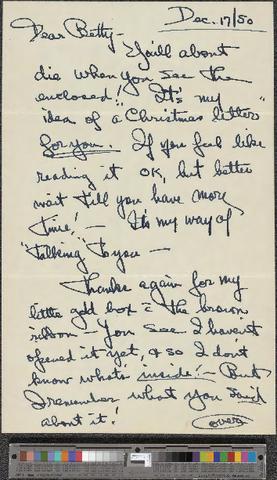 Dec. 17/50
Dear Betty -
You'll about
die when you see the
enclosed! It's my
idea of a "Christmas letter"
for you. If you feel like
reading it OK, but better
wait till you have more
time! - It's my way of
"talking" to you -
Thanks again for my
little gold box c̄ the brown
ribbon - You see I haven't
opened it yet, & so I don't
know what's inside! - But
I remember what you said
about it!
(over)